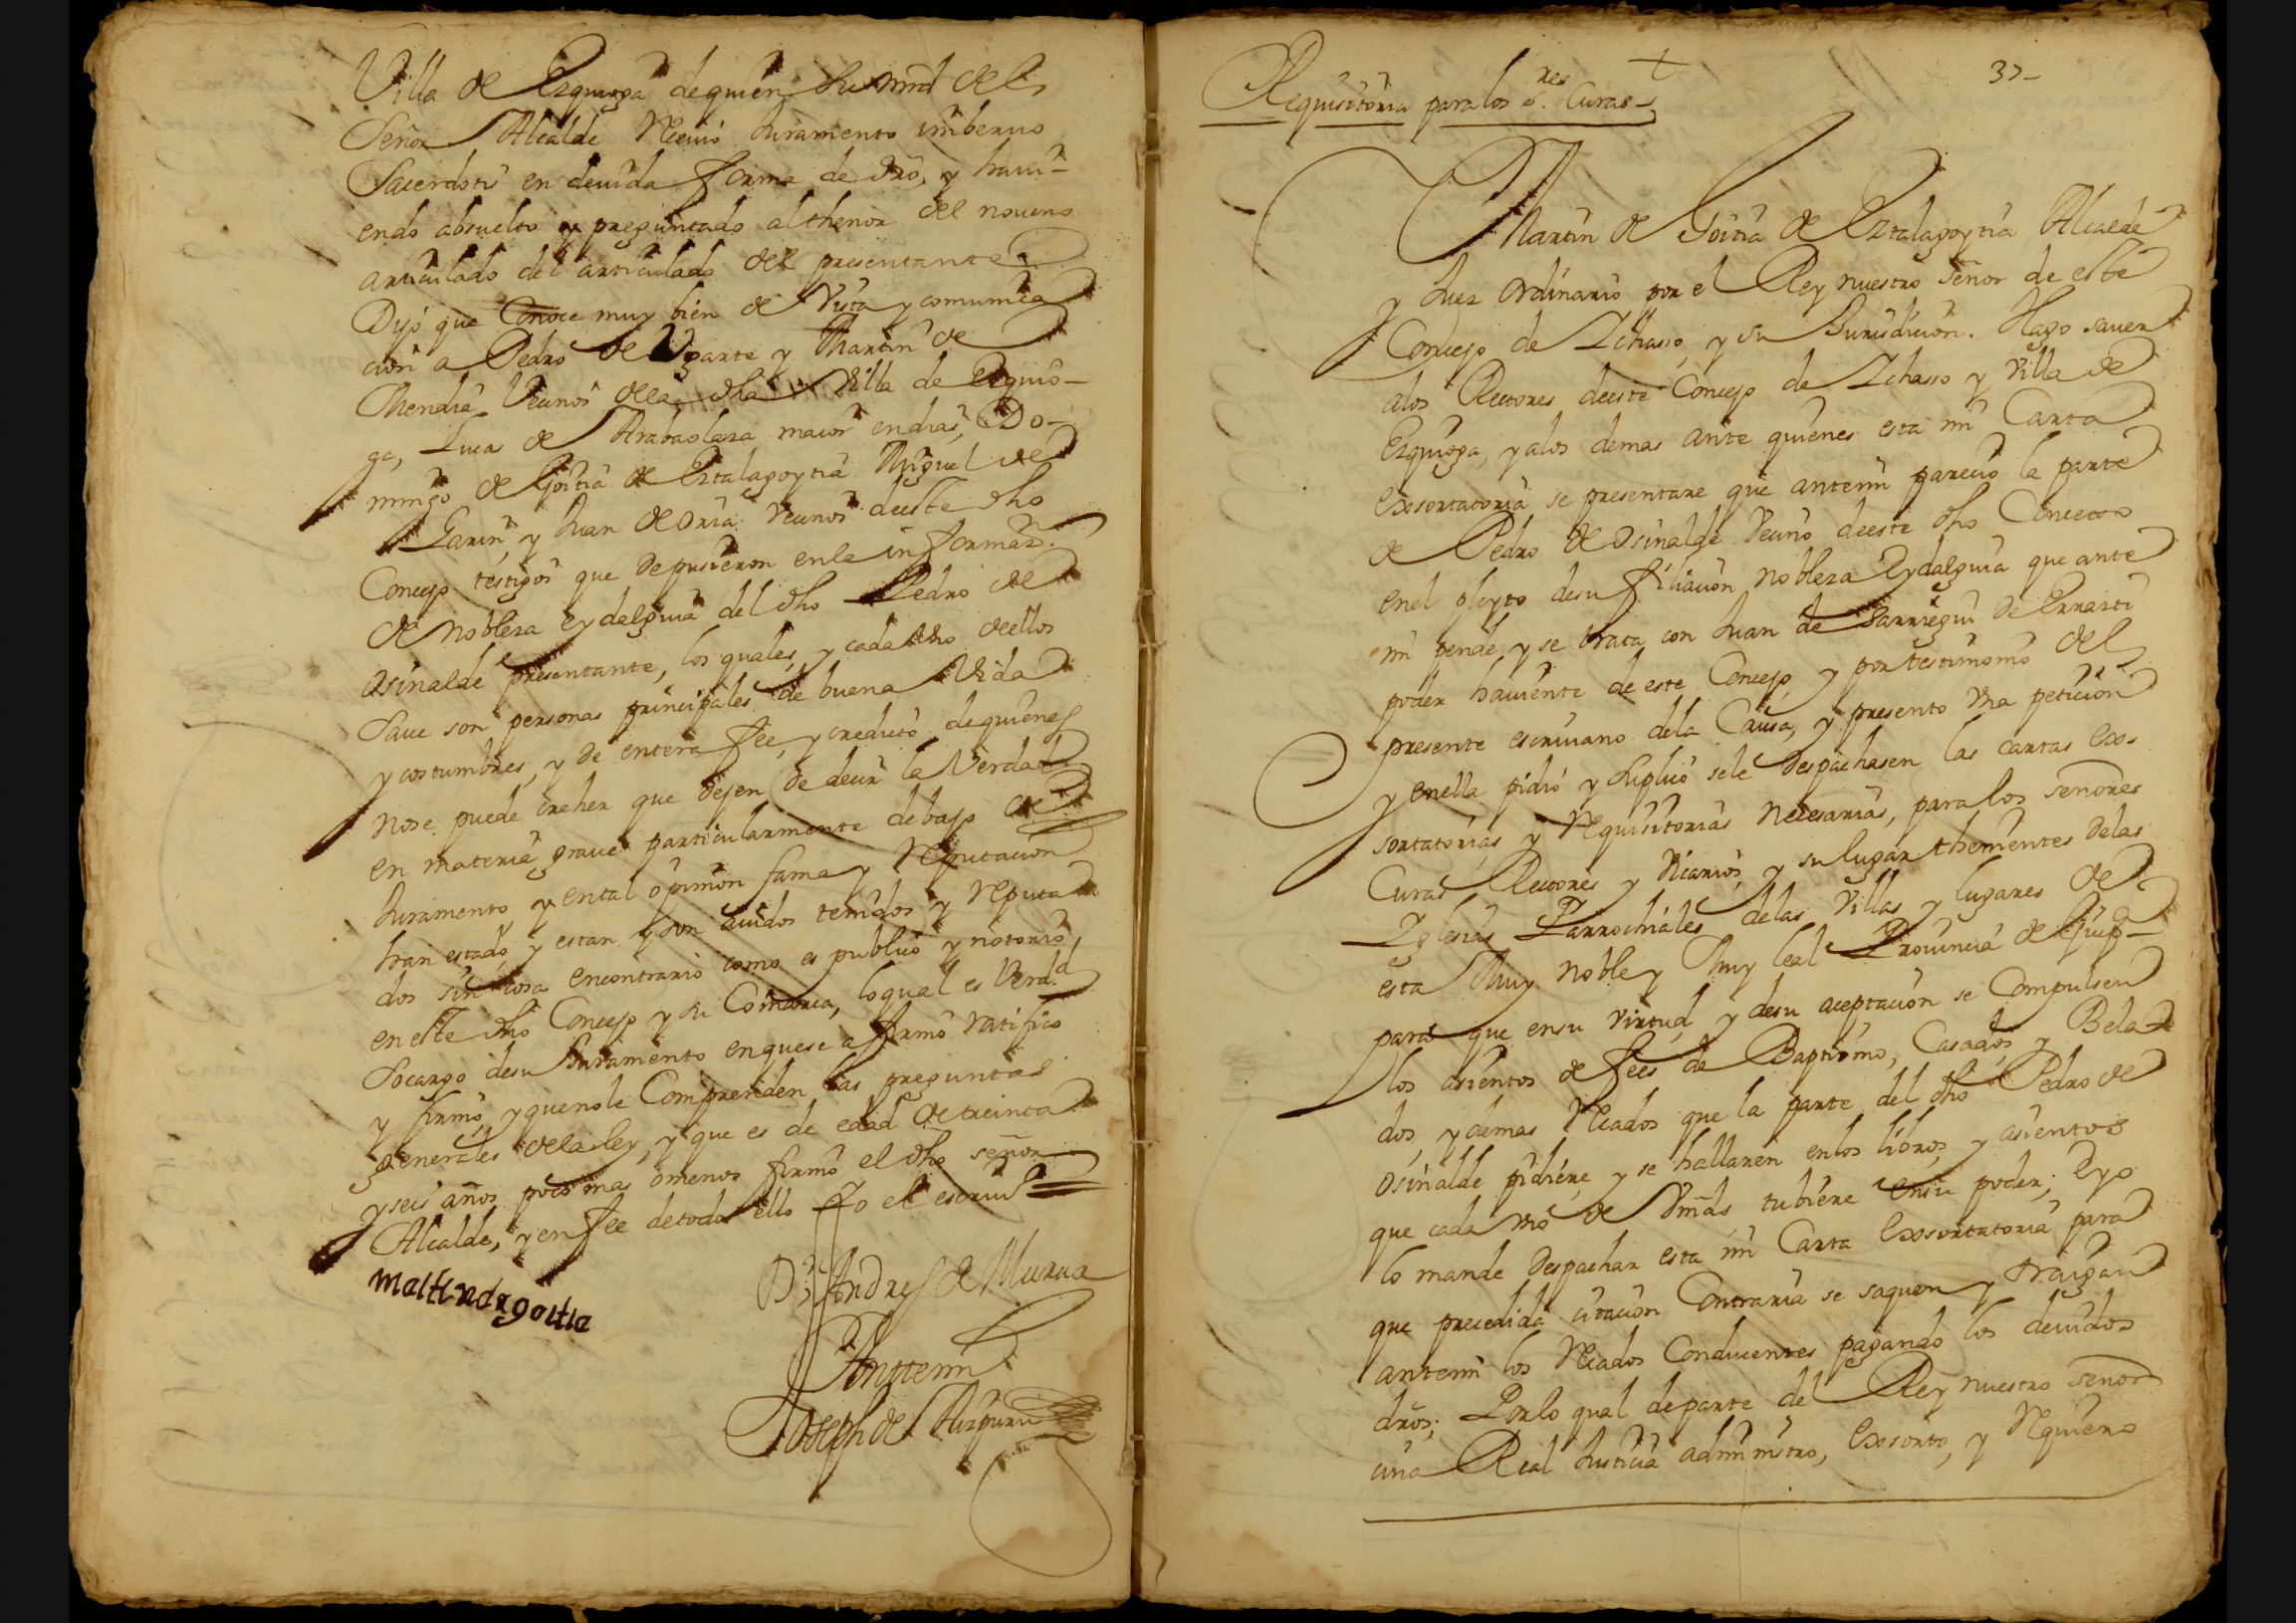 Villa de Ezquioga de quien su mrd del
Señor Alcalde Reciuio Juramento in beruo
Sacerdotis en deuida forma de dro, y haui-
endo absuelto y preguntado al thenor del noueno
articulado del articulado del presentante
Dijo que Conoce muy bien de Vista y comunica
cion a Pedro de Vgarte y Martin de
Mendia Vecinos de la dha Villa de Ezquio-
ga, Lucas de Arabaolaza maior en dias, Do-
mingo de Goitia de Eztalagoytia Miguel de
Garin, y Juan de Oria Vecinos de este dho
Concejo testigos que depusieron en la informazn.
de nobleza Eydalguia del dho Pedro de
Osinalde presentante, los quales, y cada Vno de ellos
Saue son personas principales de buena Vida
y costumbres, y de entera fee, y credito de quienes
nose puede creher que dejen de decir la Verdad
en materia graue particularmente debajo de
Juramento y en tal opinion fama y Reputacion
han estado, y estan y son auidos tenidos y Reputa
dos sin cosa en contrario como es publico y notorio
en este dho Concejo y su Comarca, lo qual es Verd.d
Socargo desu Juramento en que se afirmó ratifico
y firmó, y que no le Comprenden las preguntas
generales dela ley, y que es de edad de treinta
y seis años poco mas ómenos firmó el dho señor
Alcalde, y en fee de todo ello Yo el escriu.o
Martin de goitia
D.n Andres de Murua
Antemi
Joseph de Aizpuru
Requisitoria para los s.res Curas
37
Martin de Goitia de Eztalagoytia Alcalde
y Juez Ordinario por el Rey nuestro Señor de este
Concejo de Ichasso, y su Jurisdicion. Hago sauer
alos Rectores deeste Concejo de Ichasso y Villa de
Ezquioga, y alos demas ante quienes esta mi Carta
Exsortatoria se presentare que antemi parecio la parte
de Pedro de Osinalde Vecino deeste dho Concejo
enel pleyto desu filiacion nobleza Eydalguia que ante
mi pende, y se trata con Juan de Sarriegui de Errazti
poder hauiente de este Concejo, y por testimonio del
presente escriuano dela Causa, y presento Vna peticion
y enella pidió y Suplicó sele despachasen las cartas Ex-
sortatorias y Requisitorias Necesarias, para los señores
Curas Rectores y Vicarios, y su lugar thenientes delas
Iglesias Parrochiales delas Villas y lugares de
esta Muy noble y Muy leal Prouincia de Guip-
para que ensu virtud y desu aceptacion se Compulsen
los asientos de fees de Baptismo, Casados y Bela
dos, y demas Recados que la parte del dho Pedro de
Osinalde pidiere, y se hallaren enlos libros, y asientos
que cada vno de Vmds tubiere ensu poder; Eyo
lo mande despachar esta mi Carta Exsortatoria para
que precedida citacion Contraria se saquen y traigan
antemi los Recados Conducentes pagando los deuidos
dros; Por lo qual departe del Rey nuestro señor
cuia Real Justicia administro, Exsorto, y Requiero